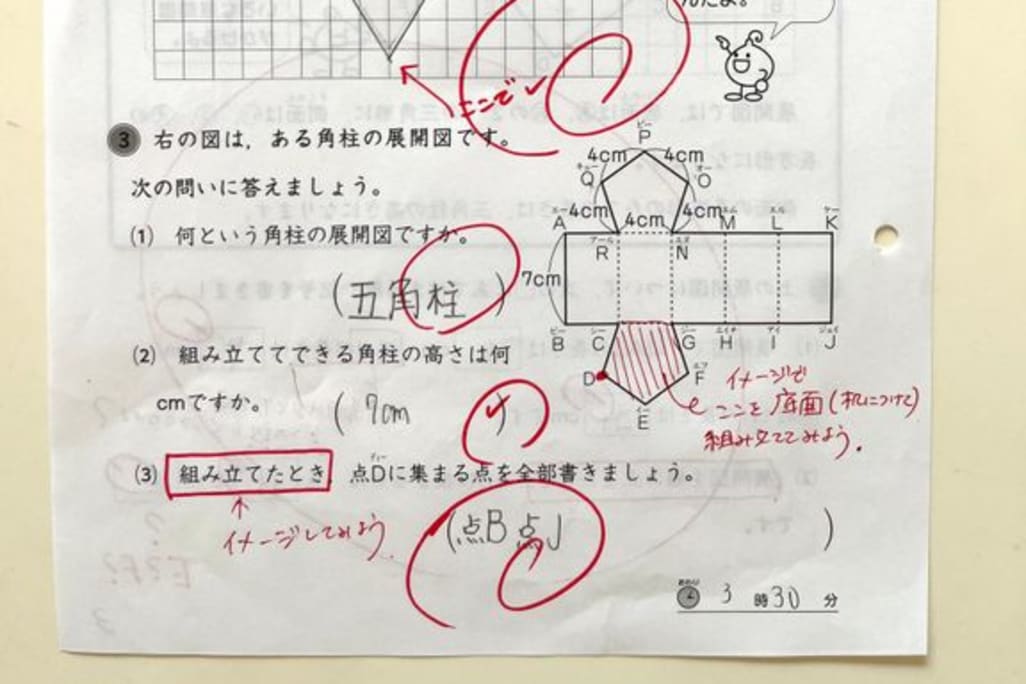 んだよ。
ここで
3 右の図は，ある角柱の展開図です。
次の問いに答えましょう。
(1) 何という角柱の展開図ですか。
(五角柱)
(2) 組み立ててできる角柱の高さは何
cmですか。 (7cm)
(3) 組み立てたとき，点Dに集まる点を全部書きましょう。
イメージしてみよう.
(点B 点J)
ピー
P
4cm 4cm
Q O
4cm 4cm 4cm
エー エム エル ケー
A M L K
アール エヌ
R N
7cm
ビー シー ジー エイチ アイ ジェイ
B C G H I J
D エフ
F
イー
E
イメージで
ここを底面(机につけて)
組み立ててみよう.
おわり
3 時 30 分